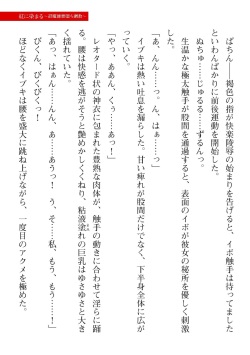 紅に染まる
ばちん――　褐色の指が快楽陵辱の始まりを告げると、イボ触手は待っていました
といわんばかりに前後運動を開始した。
ぬちゅ……じゅるる……ずるんっ。
生温かな極太触手が股間を通過すると、表面のイボが彼女の秘所を優しく刺激
「あ、んん……っ、んん、はぁ……っ」
イブキは熱い吐息を漏らした。甘い痺れが股間だけでなく、下半身全体に広が
っていく。
「やっ、あぁん、くう……あっ！」
レオタード状の神衣に包まれた豊熟な肉体が、触手の動きに合わせて淫らに踊
る。腰は快感を逃がそうと艶めかしくくねり、粘液塗れの巨乳はゆさゆさと大き
く揺れていた。
「あっ、はぁぁ……ん、あ……あうっ！　う、あ……っ！」
「あぁっ！　ん……そ、私、もう、もう……！」
びくん、びくびくっ！
ほどなくイブキは腰を盛大に跳ね上げながら、一度目のアクメを極めた。